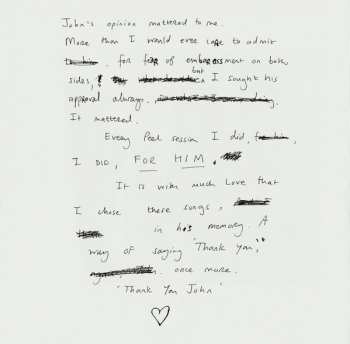 John's opinion mattered to me.
More than I would ever care to admit
for fear of embarrassment on both
sides, but I sought his
approval always.
It mattered.
Every Peel session I did,
I DID, FOR HIM.
It is with much Love that
I chose these songs,
in his memory. A
way of saying 'Thank you',
once more.
'Thank You John'